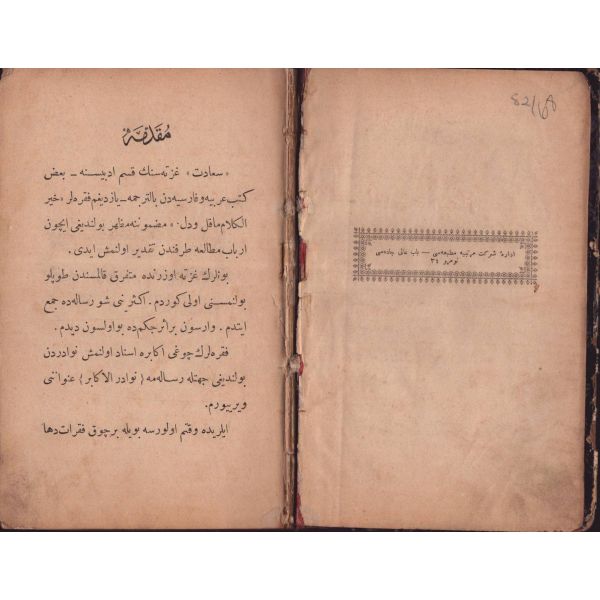 82/68
ادارۀ شركت مرتبيه مطبعه‌سی — باب عالی جاده‌سی
نومرو ٣٤
مُقَدَّمَه
«سعادت» غزته‌سنك قسم ادبیسنه – بعض
كتب عربیه و فارسیه‌دن بالترجمه – یازدیغم فقره‌لر «خیر
الكلام ماقل و دل.» مضموننه مظهر بولندیغی ایچون
ارباب مطالعه طرفندن تقدیر اولنمش ایدی.
بونلرك غزته اوزرنده متفرق قالمسندن طوپلو
بولنمسنی اولی كوردم. اكثرینی شو رساله‌ده جمع
ایتدم. وارسون براثرجكم‌ده بو اولسون دیدم.
فقره‌لرك چوغی اكابره اسناد اولنمش نوادردن
بولندیغی جهتله رساله‌مه {نوادر الاكابر} عنواننی
ویرییورم.
ایلریده وقتم اولورسه بویله برچوق فقرات دها